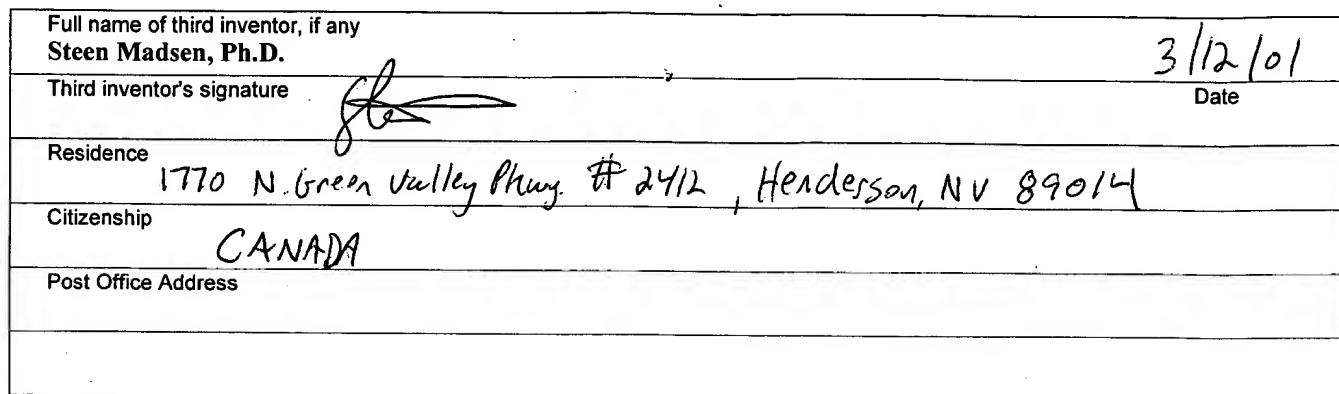 Full name of third inventor, if any
Steen Madsen, Ph.D.
3/12/01
Third inventor's signature
Date
Residence
1770 N. Green Valley Pkwy. # 2412, Henderson, NV 89014
Citizenship
CANADA
Post Office Address